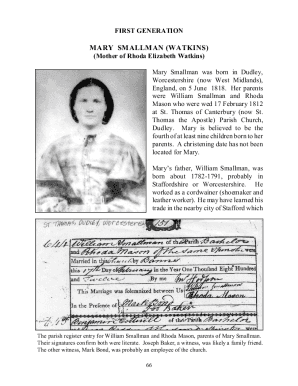 FIRST GENERATION
MARY SMALLMAN (WATKINS)
(Mother of Rhoda Elizabeth Watkins)
Mary Smallman was born in Dudley,
Worcestershire (now West Midlands),
England, on 5 June 1818. Her parents
were William Smallman and Rhoda
Mason who were wed 17 February 1812
at St. Thomas of Canterbury (now St.
Thomas the Apostle) Parish Church,
Dudley. Mary is believed to be the
fourth of at least nine children born to her
parents. A christening date has not been
located for Mary.
Mary's father, William Smallman, was
born about 1782-1791, probably in
Staffordshire or Worcestershire. He
worked as a cordwainer (shoemaker and
leather worker). He may have learned his
trade in the nearby city of Stafford which
ST THOMAS, DUDLEY, WORCESTERSHIRE 157
William Smallman of this Parish Bachelor
and Rhoda Mason of the same Spinster
Married in this Church by Banns
this 17th Day of February in the Year One Thousand Eight Hundred
and Twelve By me
This Marriage was solemnized between Us William Smallman
Rhoda Mason
In the Presence of Mark Bond
Jos Baker
The parish register entry for William Smallman and Rhoda Mason, parents of Mary Smallman.
Their signatures confirm both were literate. Joseph Baker, a witness, was likely a family friend.
The other witness, Mark Bond, was probably an employee of the church.
66